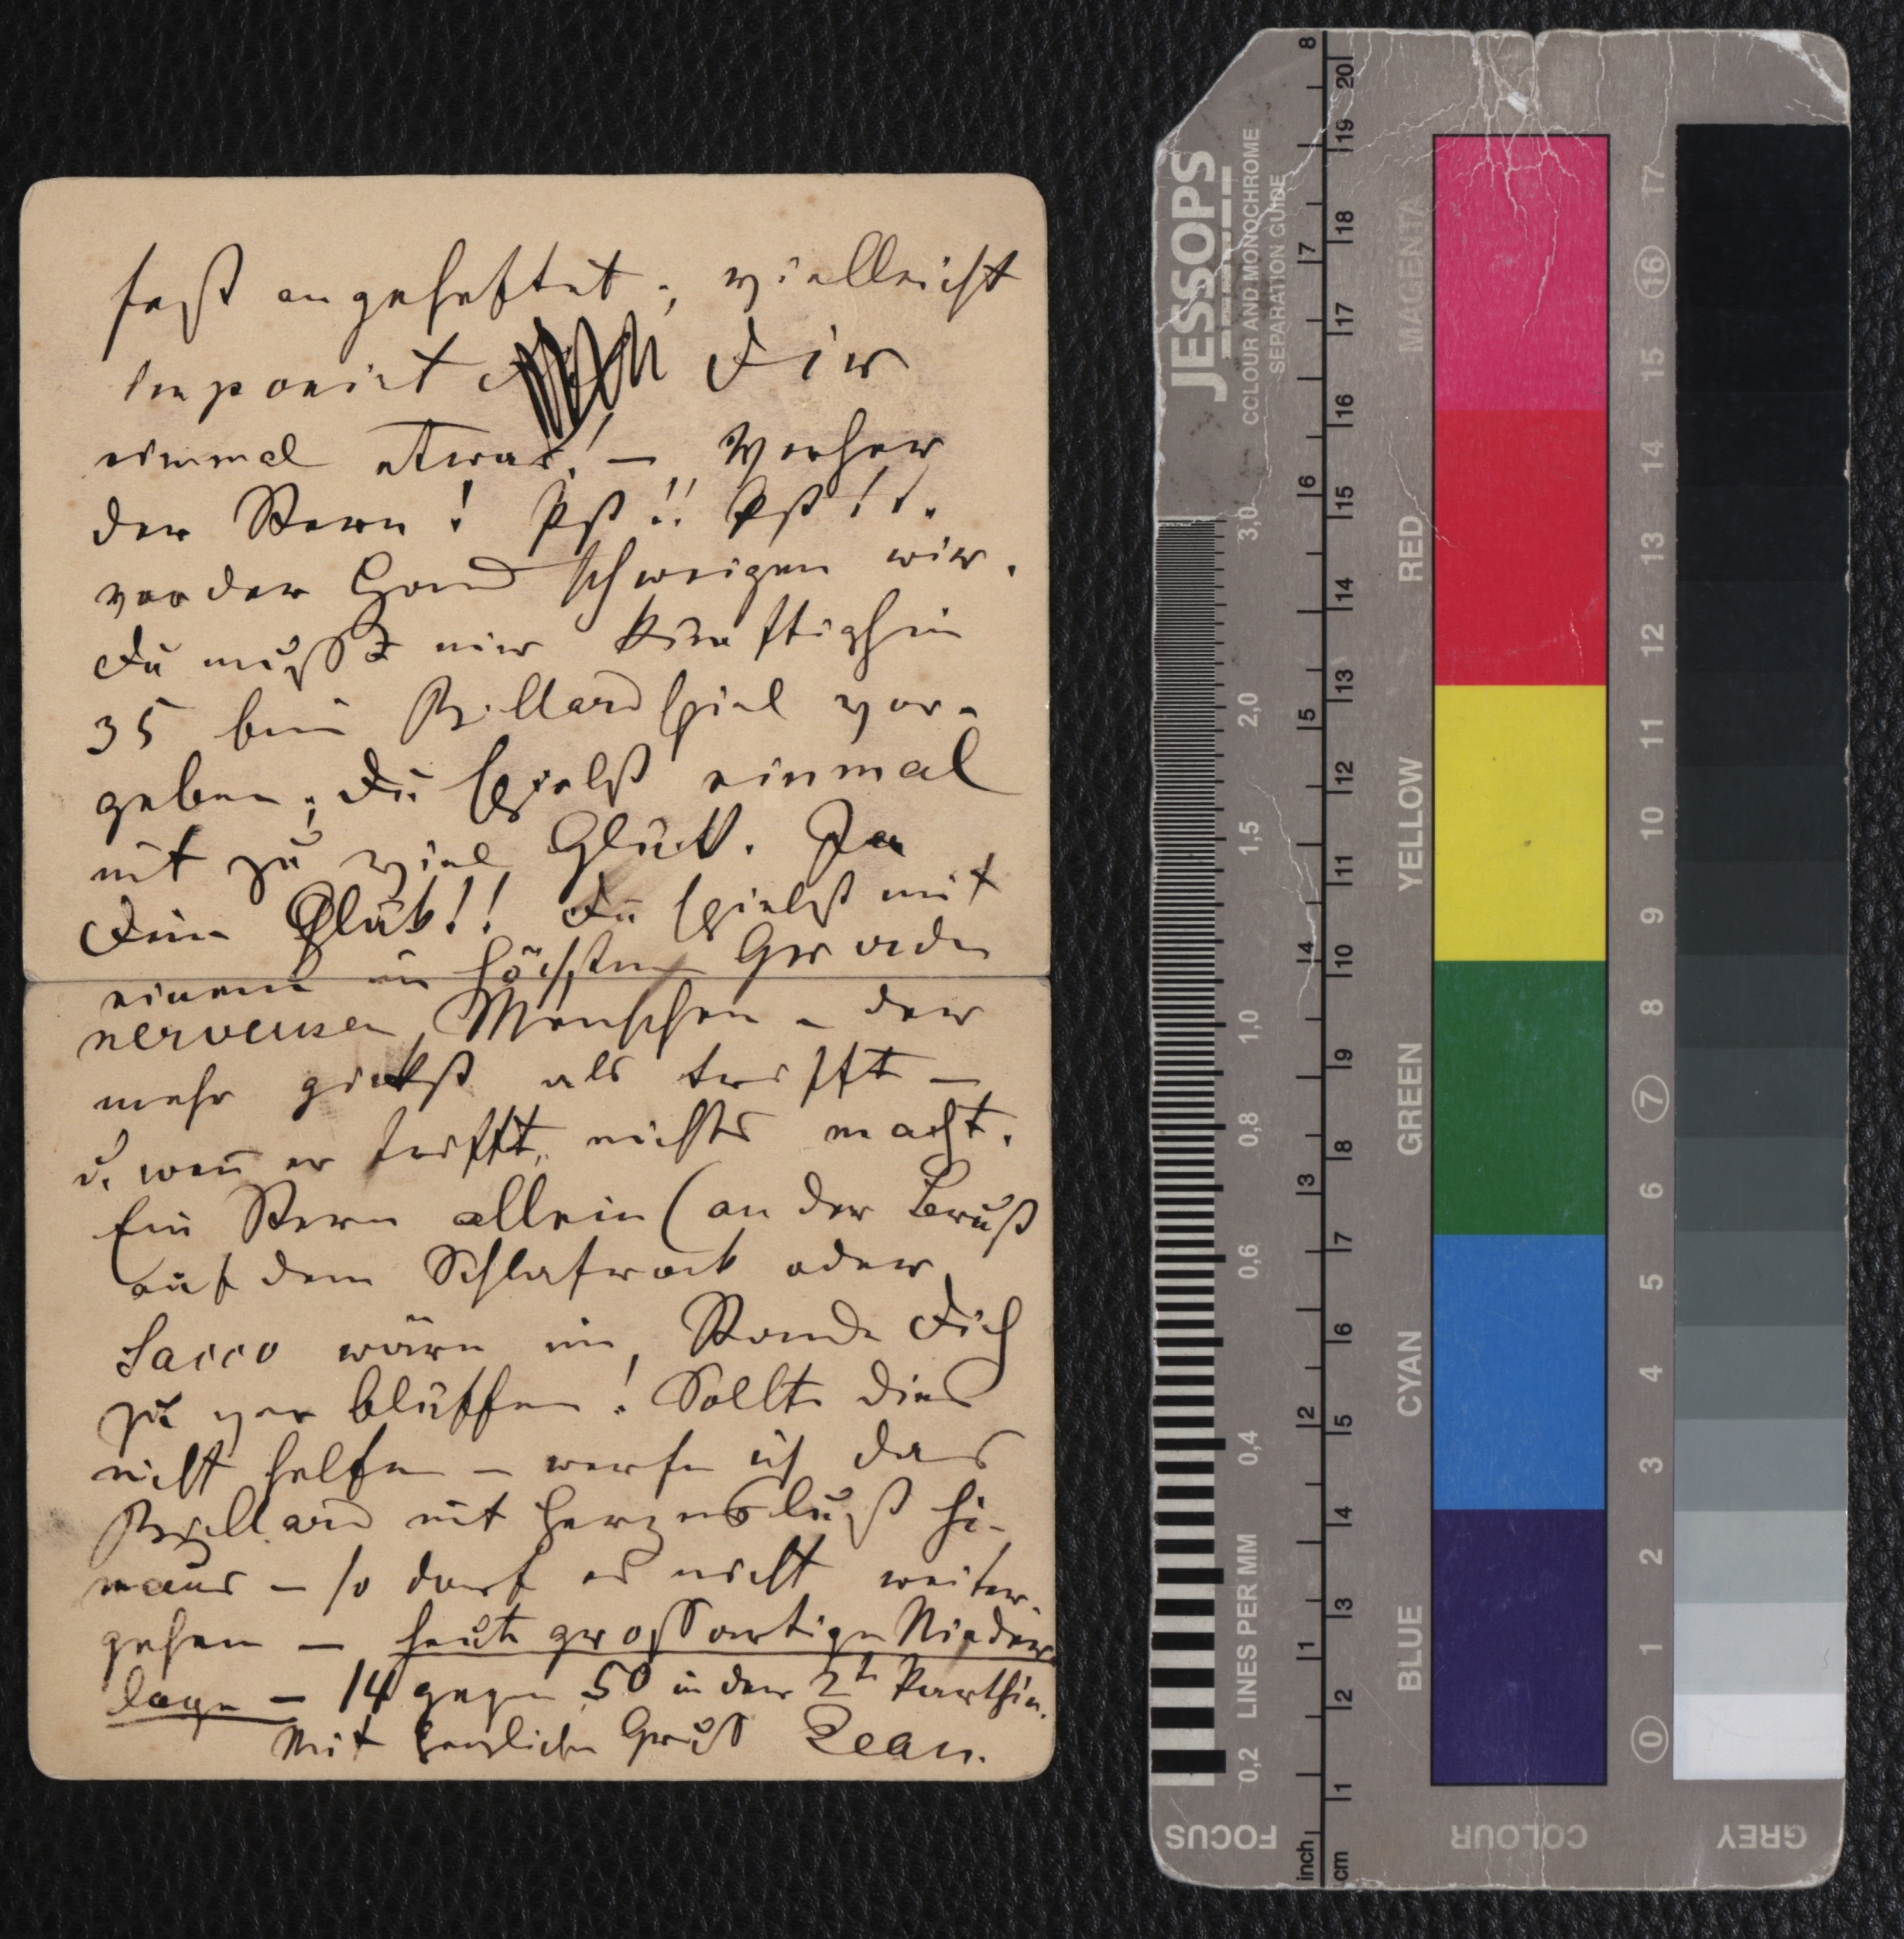 fest angeheftet; vielleicht
imponirt Dir
einmal etwas! – Vorher
der Stern! Pst!! Pst!!.
vor der Hand schweigen wir.
Du mußt mir künftighin
35 beim Billardspiel vor-
geben; Du spielst einmal
mit zu viel Glück. Ja
Dein Glück!! Du spielst mit
einem im höchsten Grade
nerveusen Menschen – der
mehr gickst als trifft –
u. wen̄ er trifft, nichts macht.
Ein Stern allein (an der Brust
auf dem Schlafrock oder
Sacco wäre im Stande Dich
zu verblüffen! Sollte dies
nicht helfen – werfe ich das
Billard mit Herzenslust hi-
naus – so darf es nicht weiter-
gehen – heute grossartige Nieder-
lage – 14 gegen 50 in der 2t Parthie.
Mit herzlichen Gruß Jean.
JESSOPS
COLOUR AND MONOCHROME
SEPARATION GUIDE
3,0 2,0 1,5 1,0 0,8 0,6 0,4 0,2
LINES PER MM
FOCUS
8 7 6 5 4 3 2 1 inch
20 19 18 17 16 15 14 13 12 11 10 9 8 7 6 5 4 3 2 1 cm
MAGENTA
RED
YELLOW
GREEN
CYAN
BLUE
COLOUR
17 16 15 14 13 12 11 10 9 8 7 6 5 4 3 2 1 0
GREY